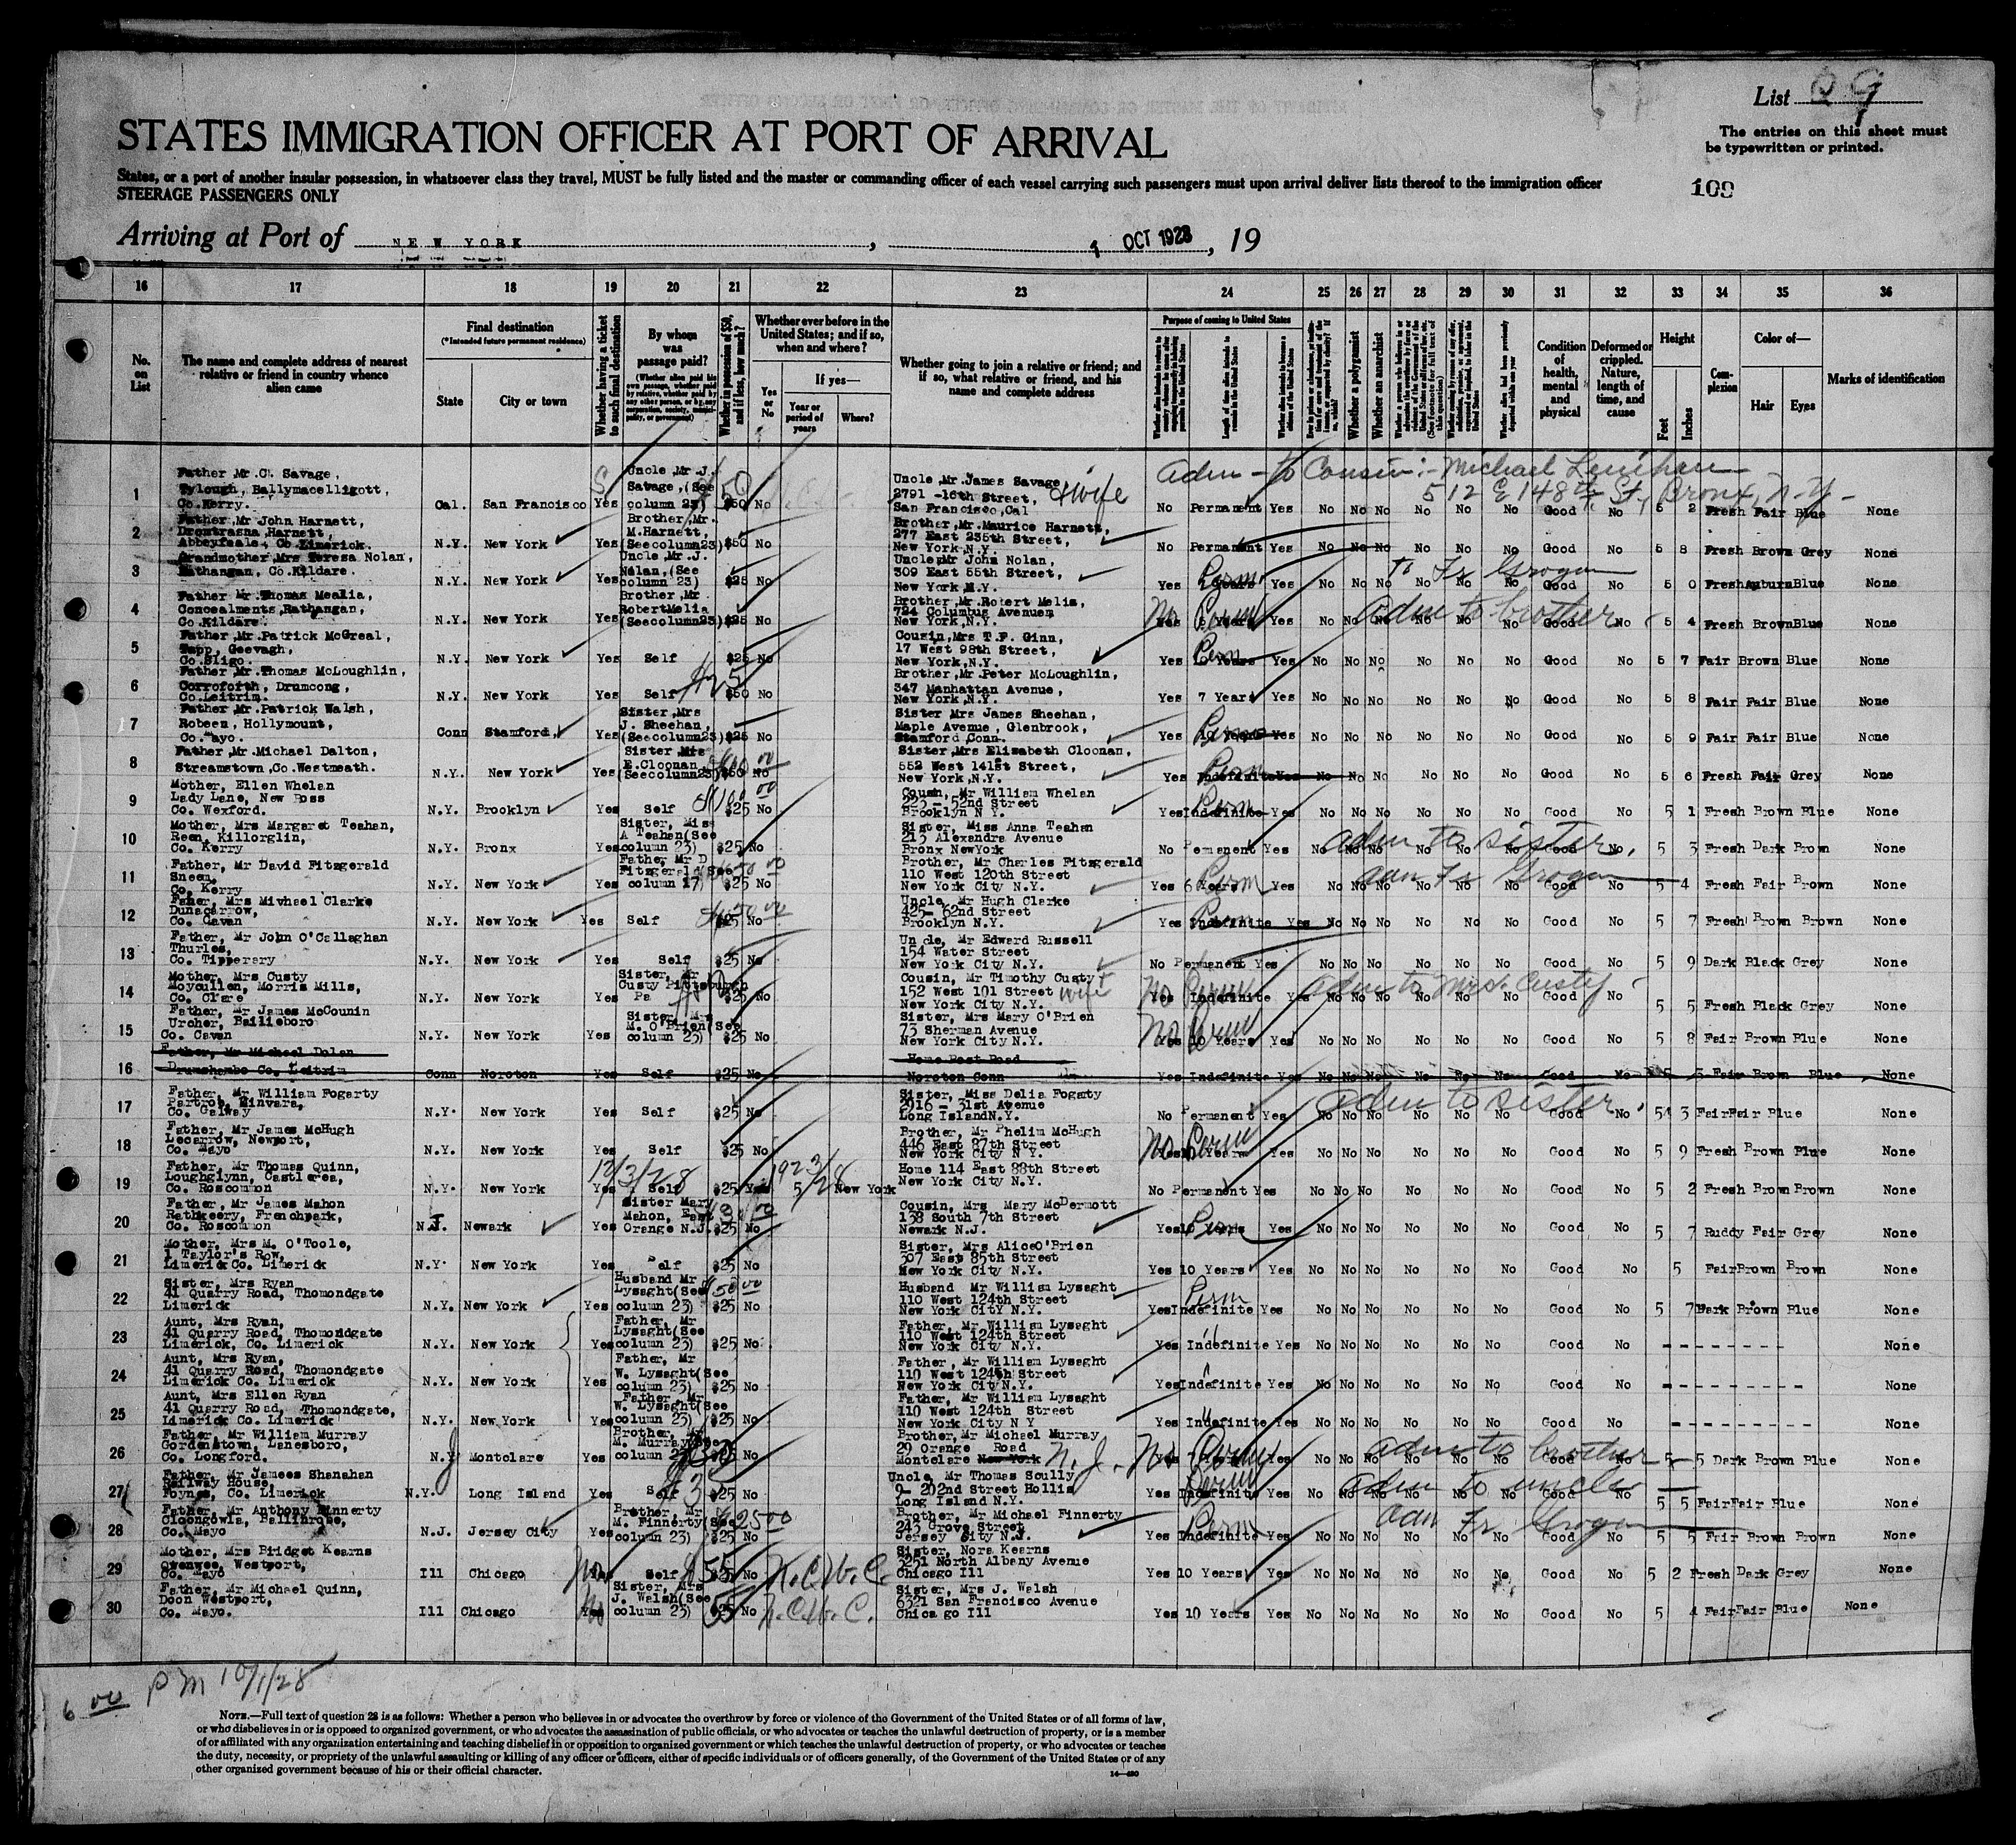 List 9
The entries on this sheet must
be typewritten or printed.
STATES IMMIGRATION OFFICER AT PORT OF ARRIVAL
States, or a port of another insular possession, in whatsoever class they travel, MUST be fully listed and the master or commanding officer of each vessel carrying such passengers must upon arrival deliver lists thereof to the immigration officer
STEERAGE PASSENGERS ONLY
109
Arriving at Port of NEW YORK, OCT 1928, 19
16 17 18 19 20 21 22 23 24 25 26 27 28 29 30 31 32 33 34 35 36
No. on List
The name and complete address of nearest relative or friend in country whence alien came
Final destination
(*Intended future permanent residence)
State
City or town
Whether having a ticket to such final destination
By whom was passage paid?
(Whether alien paid his own passage, whether paid by relative, whether paid by any other person, or by any corporation, society, municipality, or government)
Whether in possession of $50, and if less, how much?
Whether ever before in the United States; and if so, when and where?
Yes or No
If yes—
Year or period of years
Where?
Whether going to join a relative or friend; and if so, what relative or friend, and his name and complete address
Purpose of coming to United States
Length of time alien intends to remain in the United States
Whether a polygamist
Whether an anarchist
Condition of health, mental and physical
Deformed or crippled. Nature, length of time, and cause
Height
Feet
Inches
Complexion
Color of—
Hair
Eyes
Marks of identification
Adm - to Cousin:- Michael Lenihan
512 E 148th St, Bronx, N-Y-
1 Father, Mr. C. Savage, Tylough, Ballymacelligott, Co. Kerry. Cal. San Francisco Yes Uncle, Mr J. Savage, (See column 23) $50 No Uncle, Mr. James Savage, & wife 2791 -16th Street, San Francisco, Cal No Permanent Yes No No No No No No Good No 5 2 Fresh Fair Blue None
2 Father, Mr John Harnett, Dromtrasna Harnett, Abbeyfeale, Co Limerick. N.Y. New York Yes Brother, Mr. M. Harnett, (See column 23) $50 No Brother, Mr. Maurice Harnett, 277 East 235th Street, New York, N.Y. No Permanent Yes No No No No No No Good No 5 8 Fresh Brown Grey None
3 Grandmother, Mrs Teresa Nolan, Rathangan, Co. Kildare. N.Y. New York Yes Uncle, Mr. J. Nolan, (See column 23) $25 No Uncle, Mr John Nolan, 309 East 55th Street, New York, N.Y. Yes Perm Yes No No No No No No Good No To Fr Grogan 5 0 Fresh Auburn Blue None
4 Father Mr. Thomas Mealia, Concealments, Rathangan, Co. Kildare. N.Y. New York Yes Brother, Mr Robert Melia (See column 23) $25 No Brother, Mr. Robert Melia, 724 Columbus Avenue, New York, N.Y. No Perm Yes No No No No No No Good No adm to brother 5 4 Fresh Brown Blue None
5 Father, Mr. Patrick McGreal, Tapp, Geevagh, Co. Sligo. N.Y. New York Yes Self $25 No Cousin, Mrs T.F. Ginn, 17 West 98th Street, New York, N.Y. Yes Perm Yes No No No No No No Good No 5 7 Fair Brown Blue None
6 Father, Mr. Thomas McLoughlin, Corroforth, Drumcong, Co. Leitrim. N.Y. New York Yes Self $25 $50 No Brother, Mr. Peter McLoughlin, 347 Manhattan Avenue, New York, N.Y. Yes 7 Years Yes No No No No No No Good No 5 8 Fair Fair Blue None
7 Father, Mr. Patrick Walsh, Robeen, Hollymount, Co. Mayo. Conn Stamford, Yes Sister, Mrs J. Sheehan, (See column 23) $25 No Sister Mrs James Sheehan, Maple Avenue, Glenbrook, Stamford Conn. Yes Perm Yes No No No No No No Good No 5 9 Fair Fair Blue None
8 Father, Mr. Michael Dalton, Streamstown, Co. Westmeath. N.Y. New York Yes Sister Mrs E. Cloonan (See column 23) $50 No Sister, Mrs Elizabeth Cloonan, 552 West 141st Street, New York, N.Y. Yes Perm Indefinite Yes No No No No No No Good No 5 6 Fresh Fair Grey None
9 Mother, Ellen Whelan Lady Lane, New Ross Co. Wexford. N.Y. Brooklyn Yes Self $100 00 $25 No Cousin, Mr William Whelan 223 - 52nd Street Brooklyn N Y. Yes Perm Indefinite Yes No No No No No No Good No 5 1 Fresh Brown Blue None
10 Mother, Mrs Margaret Teahan, Reen, Killorglin, Co. Kerry N.Y. Bronx Yes Sister, Miss A Teahan (See column 23) $25 No Sister, Miss Anna Teahan 213 Alexandra Avenue Bronx New York No Permanent Yes No No No No No No Good No adm to sister. 5 3 Fresh Dark Brown None
11 Father, Mr David Fitzgerald Sneem, Co. Kerry N.Y. New York Yes Father, Mr D Fitzgerald (See column 17) $25 No Brother, Mr Charles Fitzgerald 110 West 120th Street New York City N.Y. Yes 6 Years Perm Yes No No No No No No Good No adm Fr Grogan 5 4 Fresh Fair Brown None
12 Father, Mrs Mivhael Clarke Dunacarrow, Co. Cavan N.Y. New York Yes Self $25 No Uncle, Mr Hugh Clarke 425- 62nd Street Brooklyn N.Y. Yes Perm Indefinite Yes No No No No No No Good No 5 7 Fresh Brown Brown None
13 Father, Mr John O'Callaghan Thurles, Co. Tipperary N.Y. New York Yes Self $25 No Uncle, Mr Edward Russell 154 Water Street New York City N.Y. No Permanent Yes No No No No No No Good No 5 9 Dark Black Grey None
14 Mother, Mrs Custy Moycullen, Morris Mills, Co. Clare N.Y. New York Yes Sister, Mr Custy Pittsburgh Pa $25 No Cousin, Mr Timothy Custy + wife 152 West 101 Street New York City N.Y. No Perm Yes Indefinite Yes No No No No No No Good No adm to Mrs. Custy 5 5 Fresh Black Grey None
15 Father, Mr James McCounin Urcher, Bailieboro Co. Cavan N.Y. New York Yes Sister, Mrs M. O'Brien (See column 23) $25 No Sister, Mrs Mary O'Brien 73 Sherman Avenue New York City N.Y. No Perm Yes 10 Years Yes No No No No No No Good No 5 8 Fair Brown Blue None
16 Father, Mr Michael Dolan Drumshambo Co. Leitrim Conn Noroton Yes Self $25 No Home Post Road Noroton Conn Yes Indefinite Yes No No No No No No Good No 5 5 Fair Brown Blue None
17 Father, Mr William Fogarty Partroe, Kinvara, Co. Galway N.Y. New York Yes Self $25 No Sister, Miss Delia Fogarty 2916 - 31st Avenue Long Island N.Y. No Permanent Yes No No No No No No Good No adm to sister. 5 3 Fair Fair Blue None
18 Father, Mr James McHugh Lecarrow, Newport, Co. Mayo N.Y. New York Yes Self $25 No Brother, Mr Phelim McHugh 446 East 87th Street New York City N Y. No Perm Years Yes No No No No No No Good No 5 9 Fresh Brown Blue None
19 Father, Mr Thomas Quinn, Loughglynn, Castlerea, Co. Roscommon N.Y. New York 12/3/28 Yes Self $25 Yes 1923/28 5/28 New York Home 114 East 88th Street New York City N.Y. No Permanent Yes No No No No No No Good No 5 2 Fresh Brown Brown None
20 Father, Mr James Mahon Ratkeery, Frenchpark, Co. Roscommon N.J. Newark Yes Sister Mary Mahon, East Orange N.J. $25 No Cousin, Mrs Mary McDermott 138 South 7th Street Newark N.J. Yes 10 Years Perm Yes No No No No No No Good No 5 7 Ruddy Fair Grey None
21 Mother, Mrs M. O'Toole, 1 Taylor's Row, Limerick Co. Limerick N.Y. New York Yes Self $25 No Sister, Mrs Alice O'Brien 307 East 85th Street New York City N.Y. Yes 10 Years Yes No No No No No No Good No 5 Fair Brown Brown None
22 Sister, Mrs Ryan 41 Quarry Road, Thomondgate Limerick N.Y. New York Yes Husband Mr Lysaght (See column 23) $50 00 $25 No Husband Mr William Lysaght 110 West 124th Street New York City N.Y. Yes Perm Indefinite Yes No No No No No No Good No 5 7 Dark Brown Blue None
23 Aunt, Mrs Ryan, 41 Quarry Road, Thomondgate Limerick, Co. Limerick N.Y. New York Yes Father, Mr Lysaght (See column 23) $25 No Father, Mr William Lysaght 110 West 124th Street New York City N.Y. Yes Indefinite Yes No No No No No No Good No -------- None
24 Aunt, Mrs Ryan, 41 Quarry Road, Thomondgate Limerick Co. Limerick N.Y. New York Yes Father, Mr W. Lysaght (See column 23) $25 No Father, Mr William Lysaght 110 West 124th Street New York City N.Y. Yes Indefinite Yes No No No No No No Good No -------- None
25 Aunt, Mrs Ellen Ryan 41 Quarry Road, Thomondgate, Limerick Co. Limerick N.Y. New York Yes Father, Mr W. Lysaght (See column 23) $25 No Father, Mr William Lysaght 110 West 124th Street New York City N Y Yes Indefinite Yes No No No No No No Good No -------- None
26 Father, Mr William Murray Gordenstown, Lanesboro, Co. Longford. N.Y. Montclare Yes Brother, Mr M. Murray (See column 23) No Brother, Mr Michael Murray 29 Orange Road Montclare New York N.J. No Perm Yes No No No No No No Good No adm to brother 5 5 Dark Brown Blue None
27 Father, Mr Jamees Shanahan Railway House, Foynes, Co. Limerick N.Y. Long Island Yes Self $25 No Uncle, Mr Thomas Scully 9- 202nd Street Hollis Long Island N.Y. Yes Perm Indefinite Yes No No No No No No Good No adm to uncle 5 5 Fair Fair Blue None
28 Father, Mr Anthony Finnerty Cloongowla, Ballinrobe, Co. Mayo N.J. Jersey City Yes Brother, Mr M. Finnerty (See column 23) $25 00 $25 No Brother, Mr Michael Finnerty 243 Grove Street Jersey City N.J. Yes Perm Indefinite Yes No No No No No No Good No adm Fr Grogan 5 5 Fair Brown Brown None
29 Mother, Mrs Bridget Kearns Owenwee, Westport, Co. Mayo Ill Chicago No Self $55 No N.C.W.C. Sister, Nora Kearns 3251 North Albany Avenue Chicago Ill Yes 10 Years Yes No No No No No No Good No 5 2 Fresh Dark Grey None
30 Father, Mr Michael Quinn, Doon Westport, Co. Mayo. Ill Chicago No Sister, Mrs J. Walsh (See column 23) 55 $25 No N.C.W.C. Sister, Mrs J. Walsh 6321 San Francisco Avenue Chicago Ill Yes 10 Years Yes No No No No No No Good No 5 4 Fair Fair Blue None
6 00 PM 10/1/28
NOTE.—Full text of question 28 is as follows: Whether a person who believes in or advocates the overthrow by force or violence of the Government of the United States or of all forms of law,
or who disbelieves in or is opposed to organized government, or who advocates the assassination of public officials, or who advocates or teaches the unlawful destruction of property, or is a member
of or affiliated with any organization entertaining and teaching disbelief in or opposition to organized government or which teaches the unlawful destruction of property, or who advocates or teaches
the duty, necessity, or propriety of the unlawful assaulting or killing of any officer or officers, either of specific individuals or of officers generally, of the Government of the United States or of any
other organized government because of his or their official character.
14—430